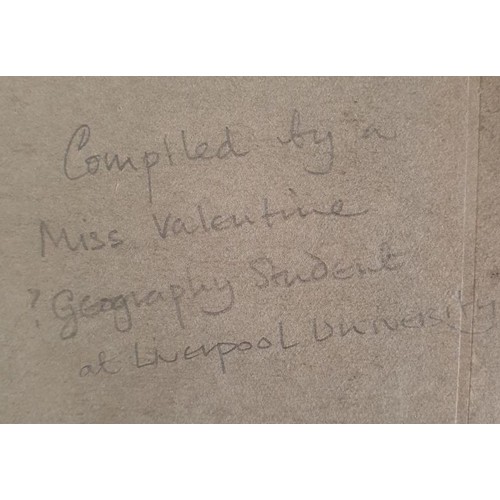 Compiled by a
Miss Valentine
? Geography Student
at Liverpool University